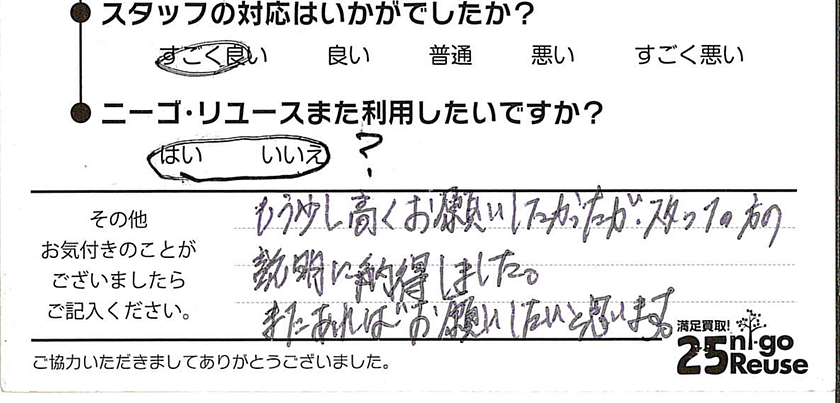 ● スタッフの対応はいかがでしたか？
すごく良い 良い 普通 悪い すごく悪い
● ニーゴ・リユースまた利用したいですか？
はい いいえ ?
その他
お気付きのことが
ございましたら
ご記入ください。
もう少し高くお願いしたかったが、スタッフの方の
説明に納得しました。
またあればお願いしたいと思います。
満足買取!
25 ni-go
Reuse
ご協力いただきましてありがとうございました。